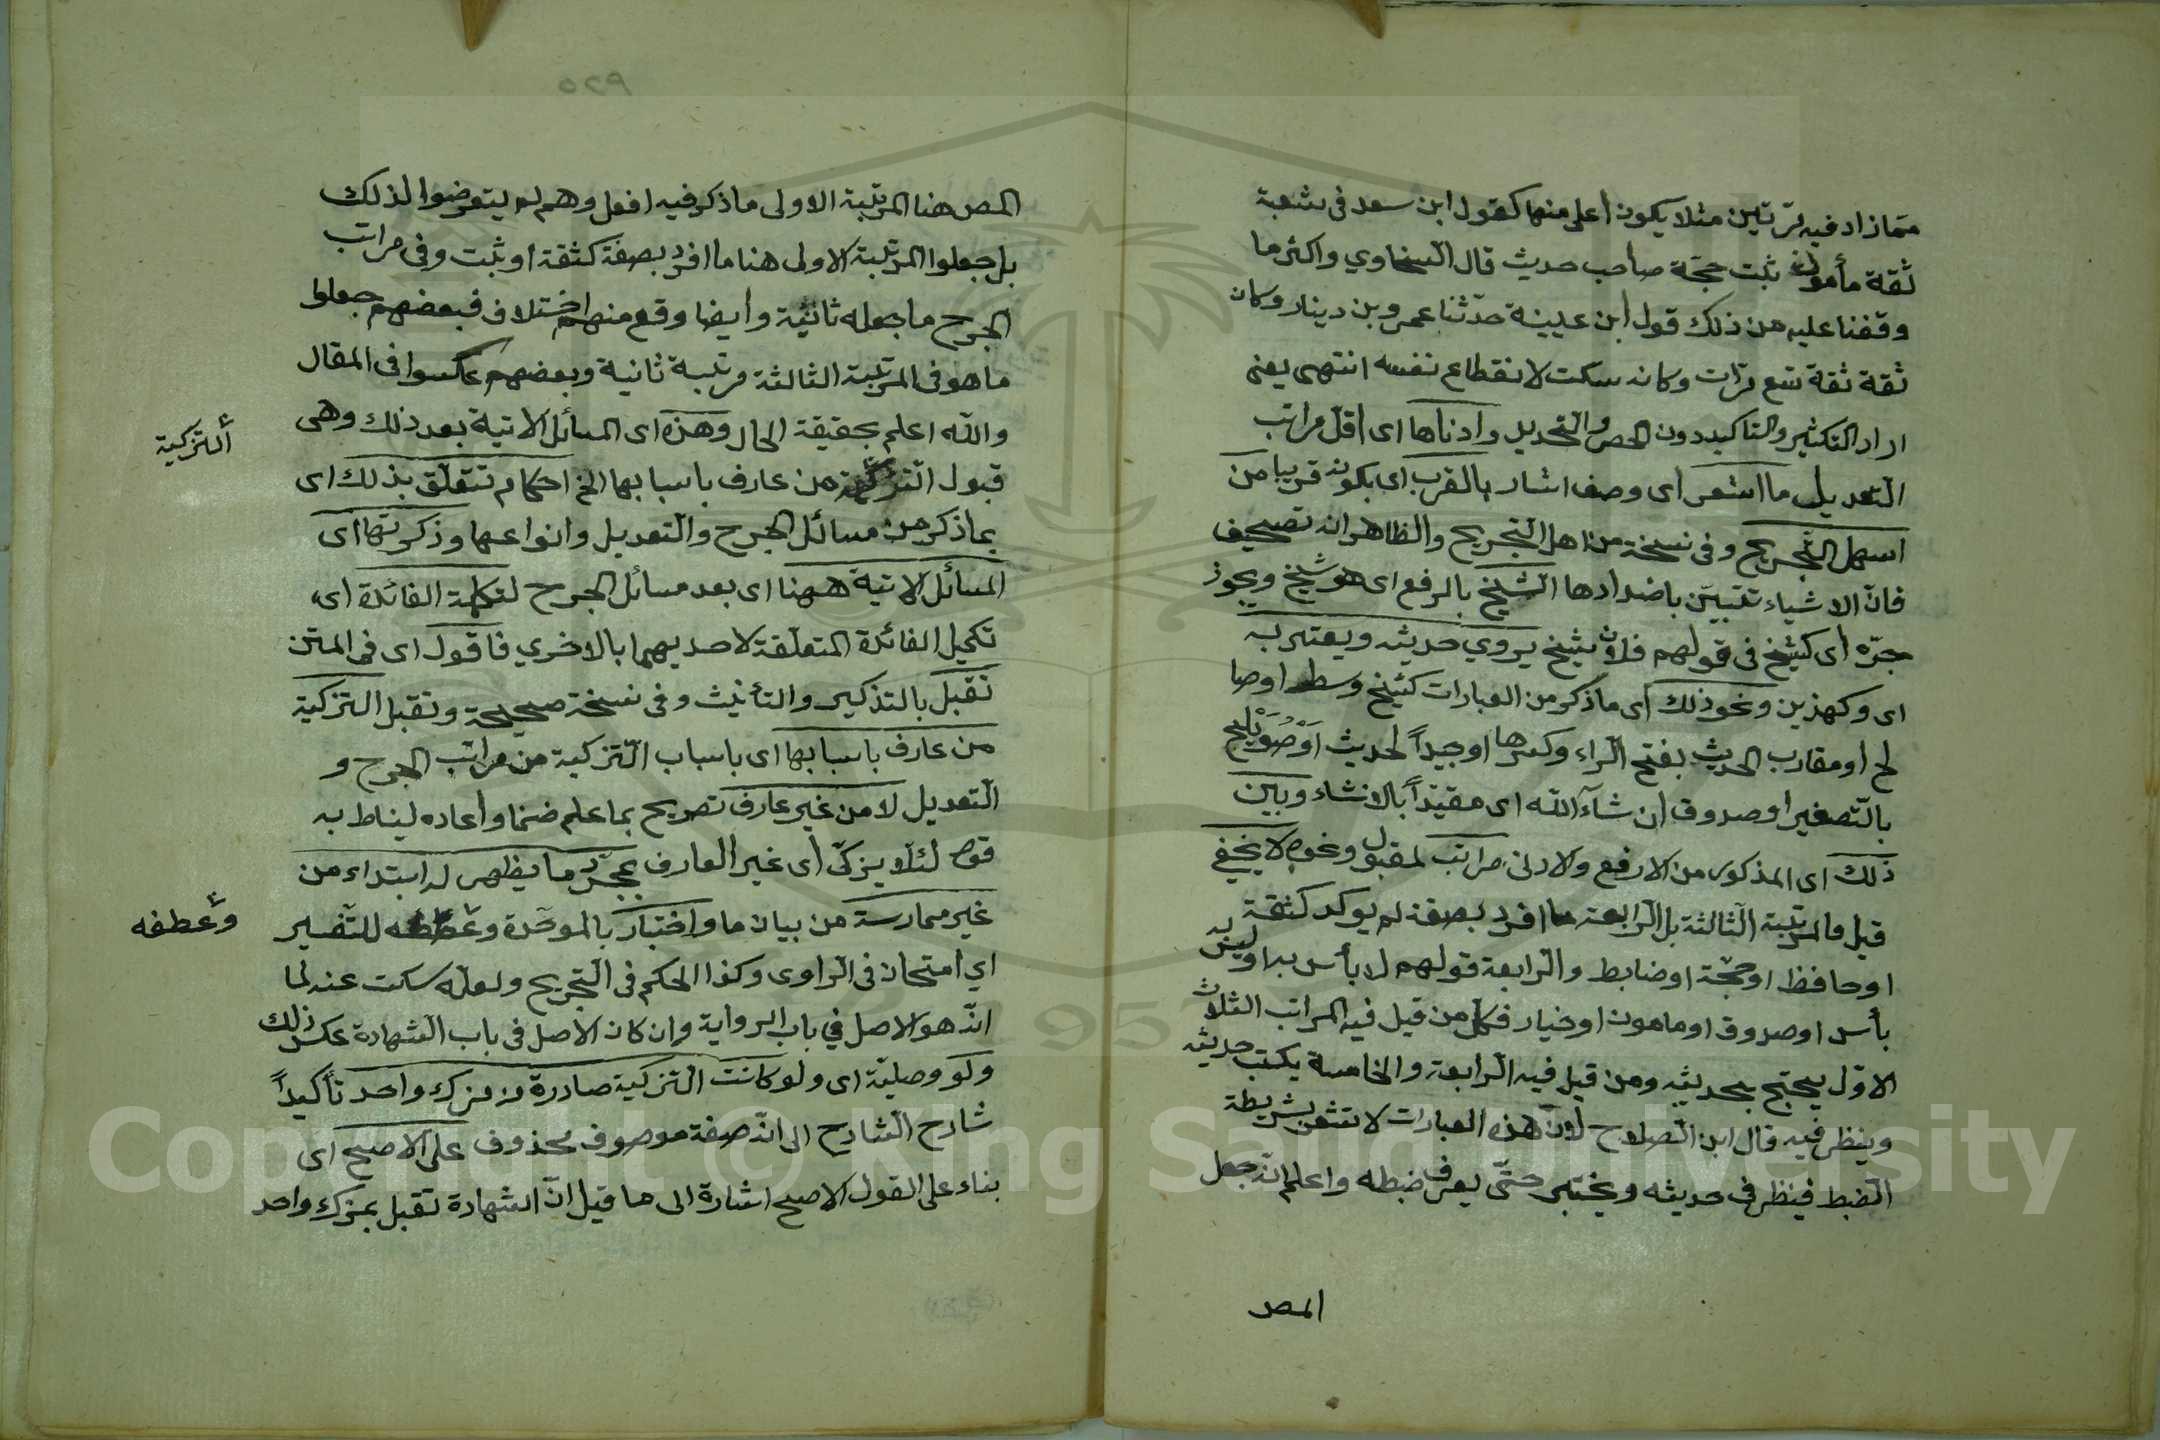 ممّا زاد فيه مرّتين مثلا يكون أعلى منها كقول ابن سعد فى شعبة
ثقة مأمون ثبت حجّة صاحب حديث قال السّخاوي واكثر ما
وقفنا عليه من ذلك قول ابن عيينة حدّثنا عمرو بن دينار وكان
ثقة ثقة تسع مرّات وكانه سكت لانقطاع نفسه انتهى يعنى
اراد التكثير والتاكيد دون الحصر والتّحديد وادناها اى اقلّ مراتب
التّعديل ما اشعر اى وصف اشار بالقرب اى بكونه قريبا من
اسهل التّجريح وفى نسخة من اهل التّجريح والظاهر انه تصحيف
فانّ الاشياء تتبيّن باضدادها الشّيخ بالرفع اى هو شيخ ويجوز
جرّه اى كشيخ فى قولهم فلان شيخ يروي حديثه ويعتبر به
اى وكهذين ونحو ذلك اى ما ذكر من العبارات كشيخ وسط اوصا
لح او مقارب الحديث بفتح الرّاء وكسرها او جيداً لحديث أوْ صُوَيْلِح
بالتّصغير او صدوق ان شآء اللّه اى مقيّداً بالانشاء وبين
ذلك اى المذكور من الارفع والادنى مراتب لمقبول ونحوه لا يخفى
قيل والمرتبة الثّالثة بل الرّابعة ما افرد بصفة لم يوكد كثقة
او حافظ او حجّة او ضابط والرّابعة قولهم لا بأس به او ليس به
بأس او صدوق او مامون او خيار فكلّ من قيل فيه المراتب الثلاث
الاوّل يحتج بحديثه ومن قيل فيه الرّابعة والخامسة يكتب حديثه
وينظر فيه قال ابن الصّلاح لانّ هذه العبارات لا تشعر بشريطة
الضّبط فينظر فى حديثه ويختبر حتّى يعرف ضبطه واعلم انّه جعل
المص
المص هنا المرتبة الاولى ما ذكر فيه افعل وهم لم يتعرضوا لذلك
بل جعلوا المرتبة الاولى هنا ما افرد بصفة كثقة او ثبت وفى مراتب
الجرح ما جعله ثانيّة وأيضا وقع منهم اختلاف فبعضهم جعلوا
ما هو فى المرتبة الثالثة مرتبة ثانية وبعضهم عكسوا فى المقال
واللّه اعلم بحقيقة الحال وهذه اى المسائل الاتية بعد ذلك وهى
قبول التزكية من عارف باسبابها الخ احكام تتعلّق بذلك اى
التزكية
بما ذكر من مسائل الجرح والتّعديل وانواعها وذكرتها اى
المسائل الاتية ههنا اى بعد مسائل الجرح لتكملة الفائدة اى
تكميل الفائدة المتعلّقة لاحديهما بالاخري فاقول اى فى المتن
تقبل بالتذكير والتأنيث وفى نسخة صحيحة وتقبل التزكية
من عارف باسبابها اى باسباب التّزكية من مراتب الجرح و
التّعديل لا من غير عارف تصريح بما علم ضمنا وأعاده ليناط به
قوله لئلّا يزكّى أى غير العارف بمجرّد ما يظهر له ابتداء من
غير ممارسة من بيان ما واختبار بالموحّدة وعطفه للتّفسير
وعطفه
اي امتحان فى الرّاوى وكذا الحكم فى التّجريح ولعلّه سكت عنه لما
انّه هو الاصل في باب الرواية وان كان الأصل فى باب الشّهادة عكس ذلك
ولو وصليّة اى ولو كانت التّزكية صادرة من مزك واحد تأكيداً
شارح الشّارح الى انّه صفة موصوف محذوف على الاصحّ اى
بناء على القول الاصح اشارة الى ما قيل انّ الشهادة تقبل بمزك واحد